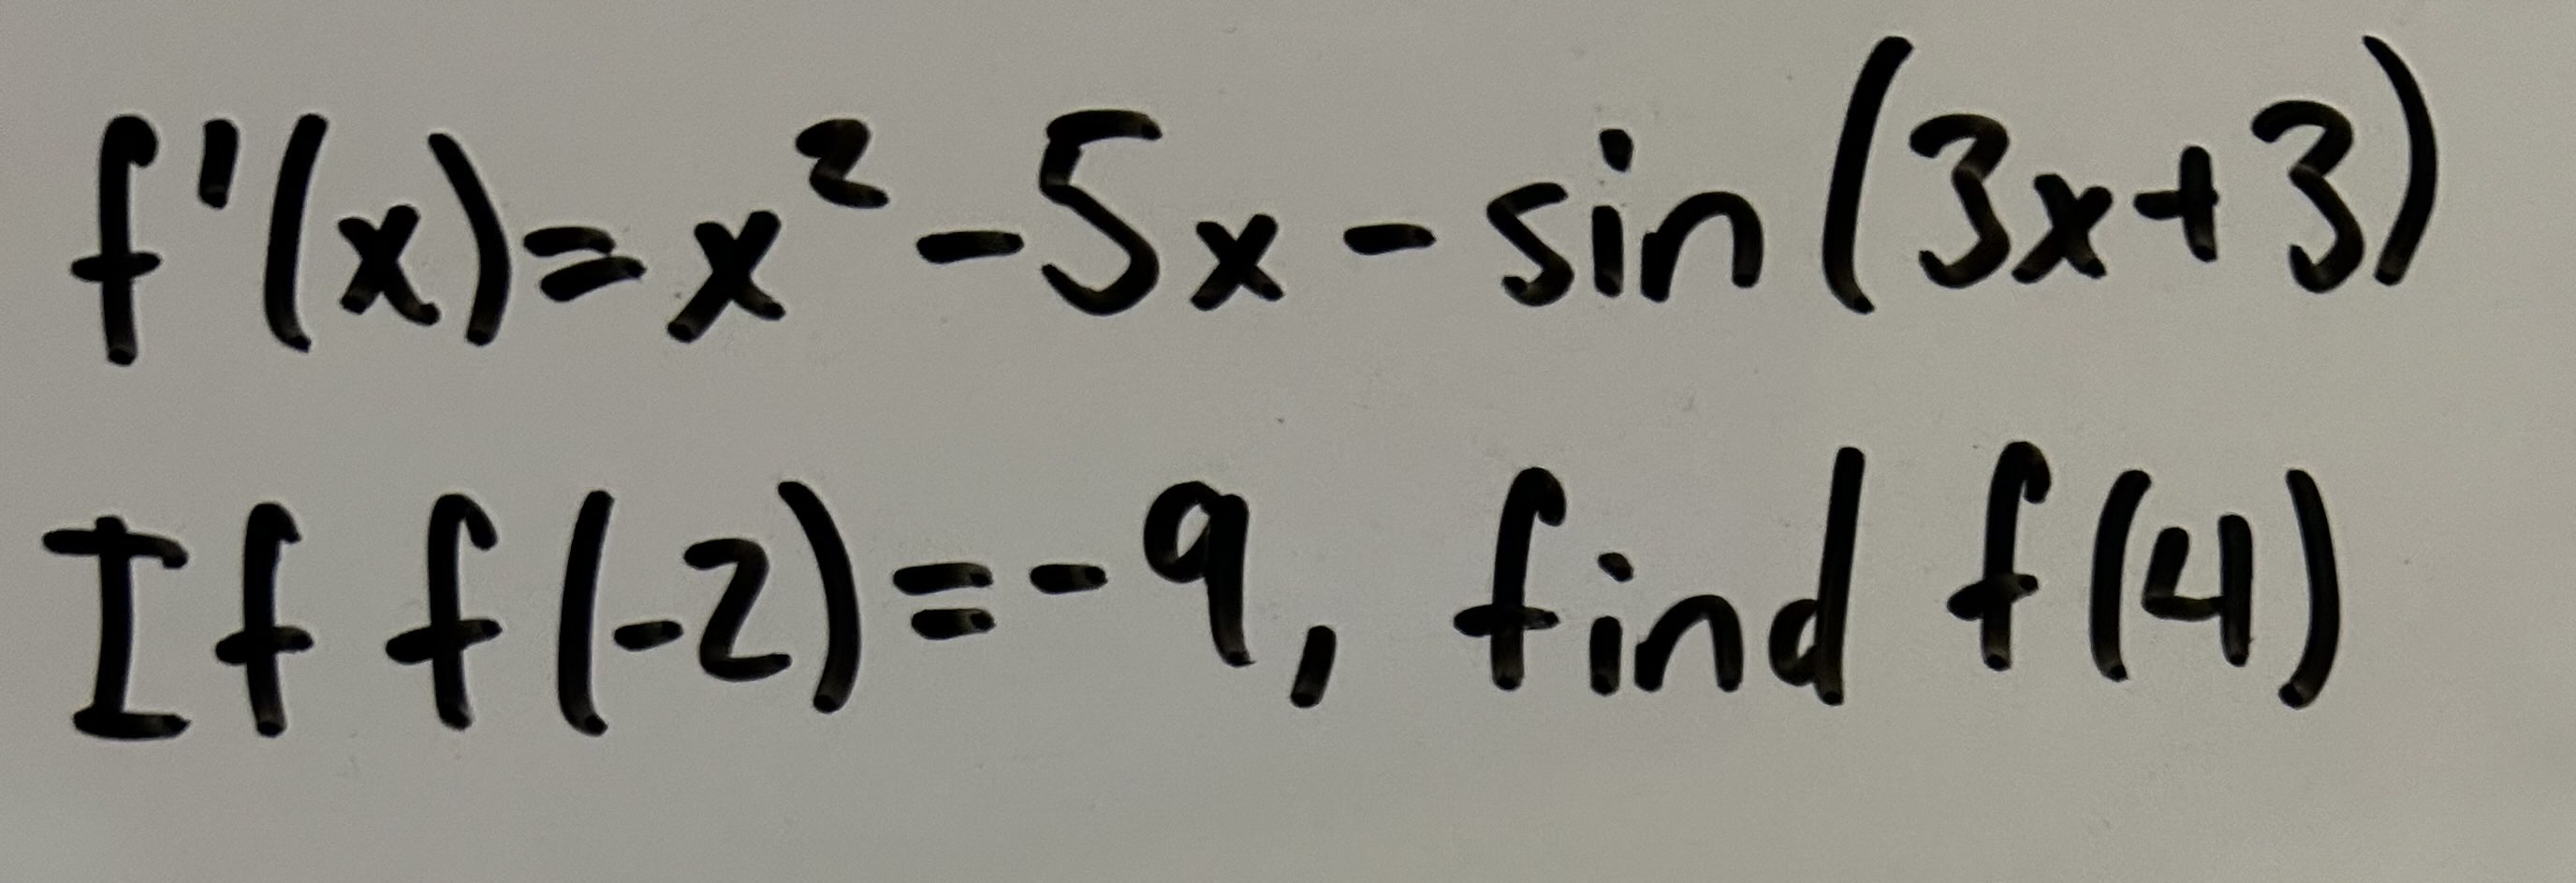 f'(x)=x²-5x-sin(3x+3)
If f(-2)=-9, find f(4)